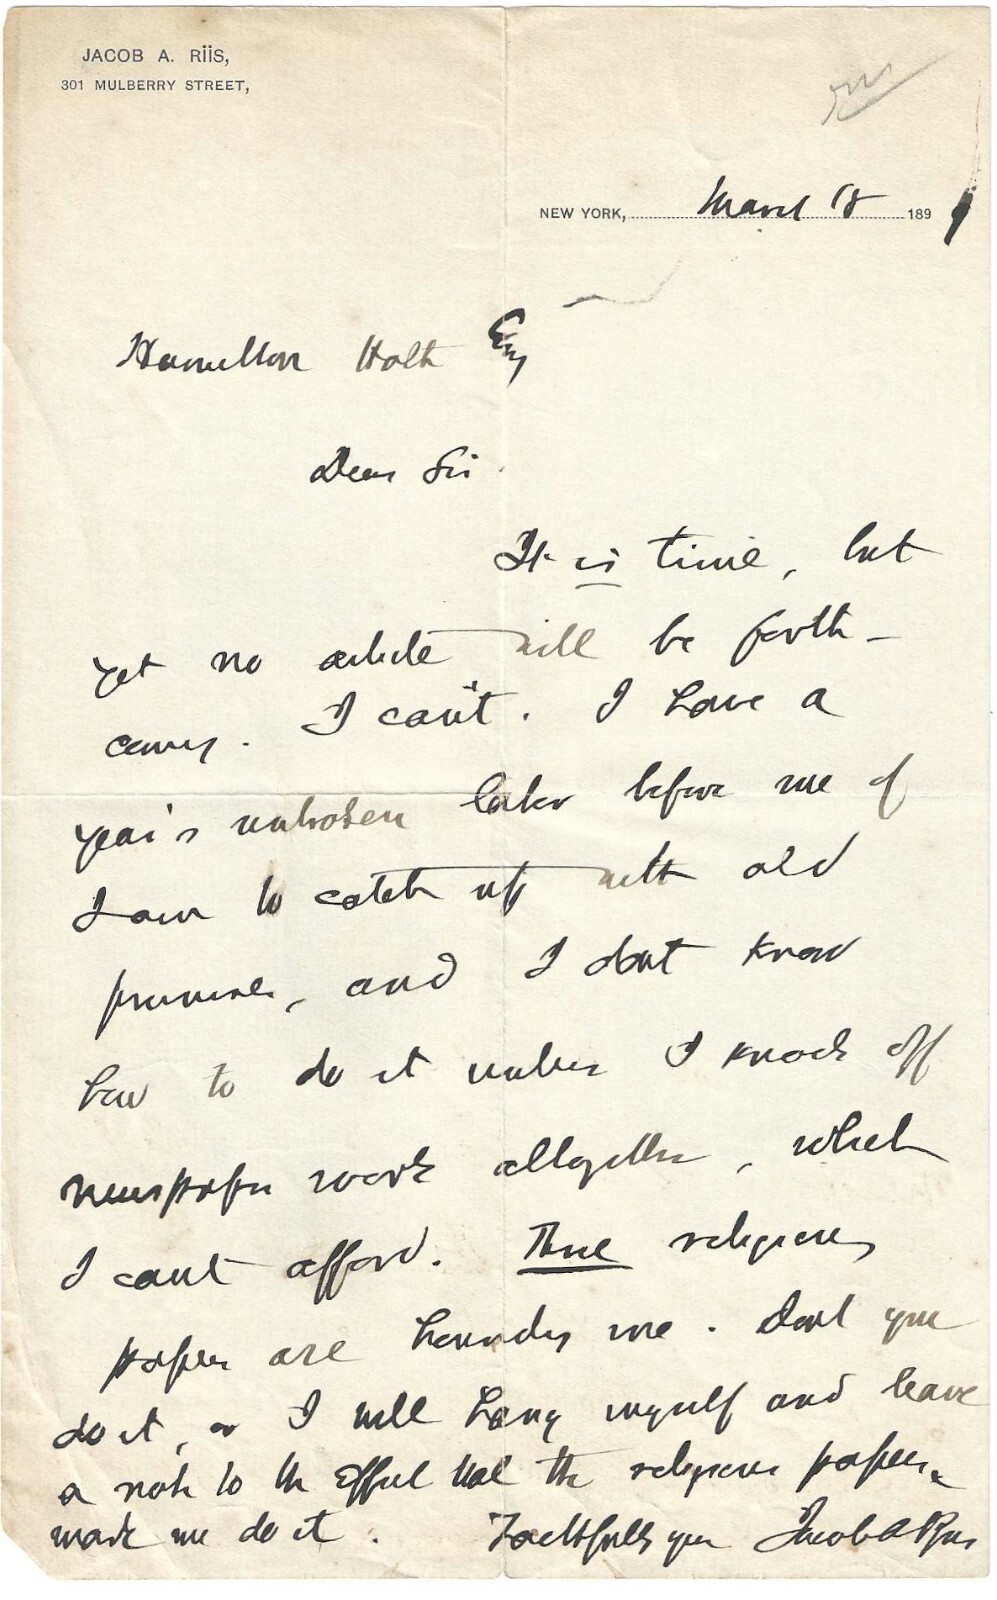 JACOB A. RIIS,
301 MULBERRY STREET,
NEW YORK, March 18 1899
Hamilton Holt Esq
Dear Sir.
It is time, but
yet no article will be forth-
coming. I can't. I have a
year's unbroken labor before me if
I am to catch up with old
promises, and I dont know
how to do it unless I knock off
newspaper work altogether, which
I cant afford. Three religious
papers are hounding me. Dont you
do it, or I will hang myself and leave
a note to the effect that the religious papers
made me do it. Faithfully yours Jacob A Riis